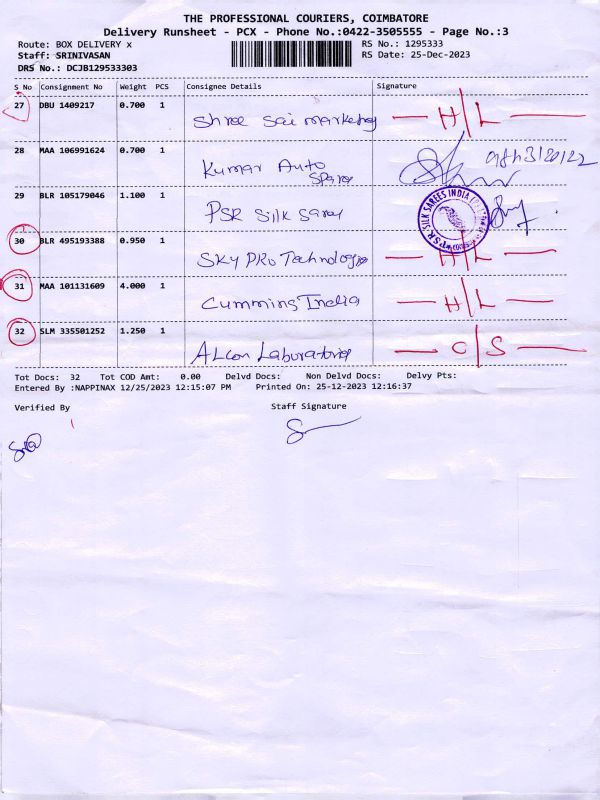 THE PROFESSIONAL COURIERS, COIMBATORE
Delivery Runsheet - PCX - Phone No.:0422-3505555 - Page No.:3
Route: BOX DELIVERY x RS No.: 1295333
Staff: SRINIVASAN RS Date: 25-Dec-2023
DRS No.: DCJB129533303
S No Consignment No Weight PCS Consignee Details Signature
27 DBU 1409217 0.700 1 Shree Sai marketing H/L
28 MAA 106991624 0.700 1 Kumar Auto
Spares
29 BLR 105179046 1.100 1 PSR Silk Sarees
PSR SILK SAREES INDIA
30 BLR 495193388 0.950 1 SKY PRO Technologies H/L
31 MAA 101131609 4.000 1 Cummins India H/L
32 SLM 335501252 1.250 1 ALcon Laboratories O/S
Tot Docs: 32 Tot COD Amt: 0.00 Delvd Docs: Non Delvd Docs: Delvy Pts:
Entered By :NAPPINAX 12/25/2023 12:15:07 PM Printed On: 25-12-2023 12:16:37
Verified By Staff Signature